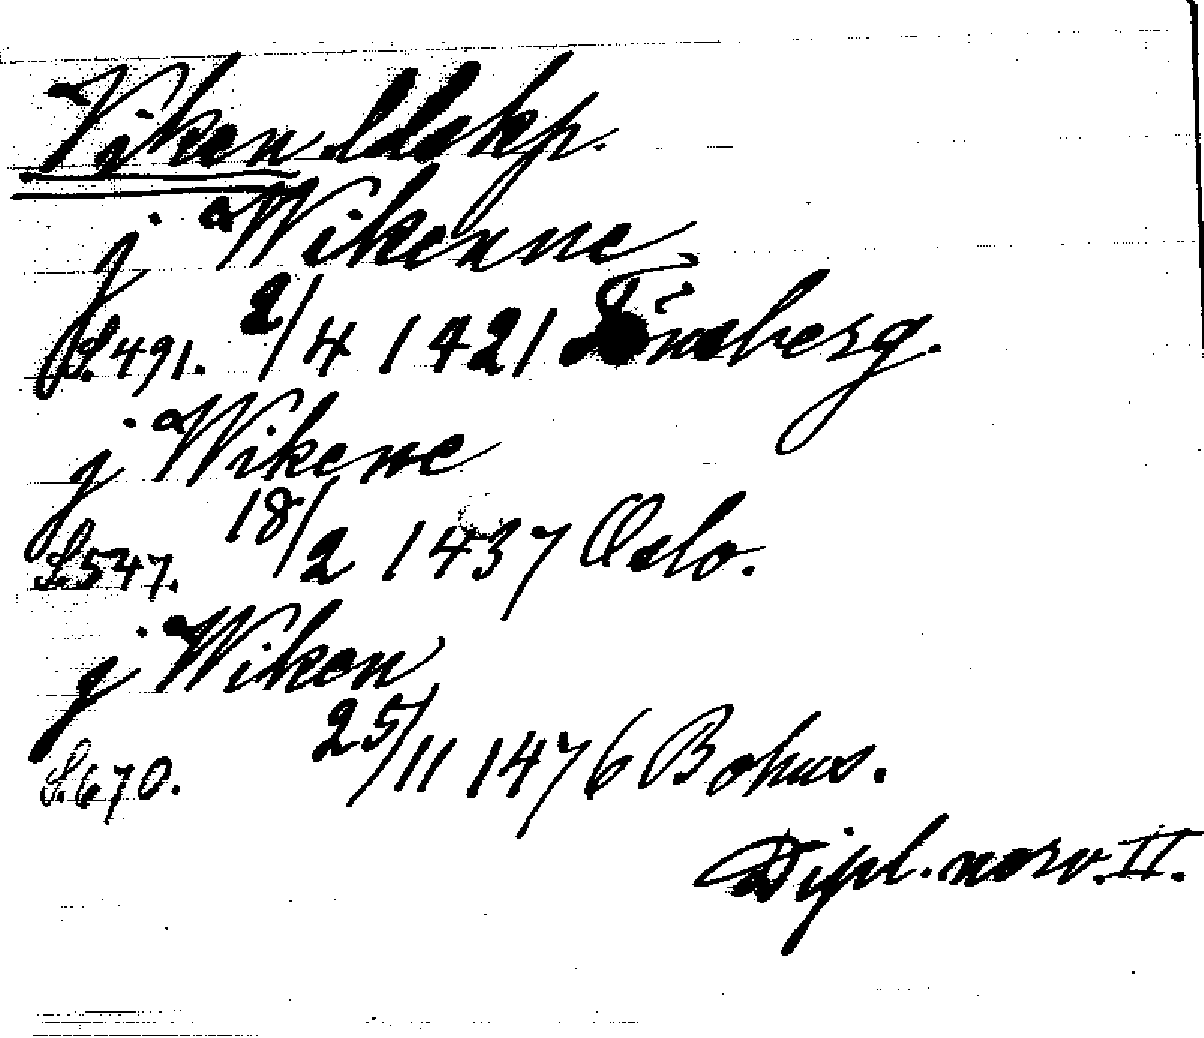 Viken ldskp.
j Wikenne
S. 491. 2/4 1421 Tönsberg.
j Wikene
S. 547. 18/2 1437 Oslo.
j Wiken
S. 670. 25/11 1476 Bohus.
Dipl. norv. II.